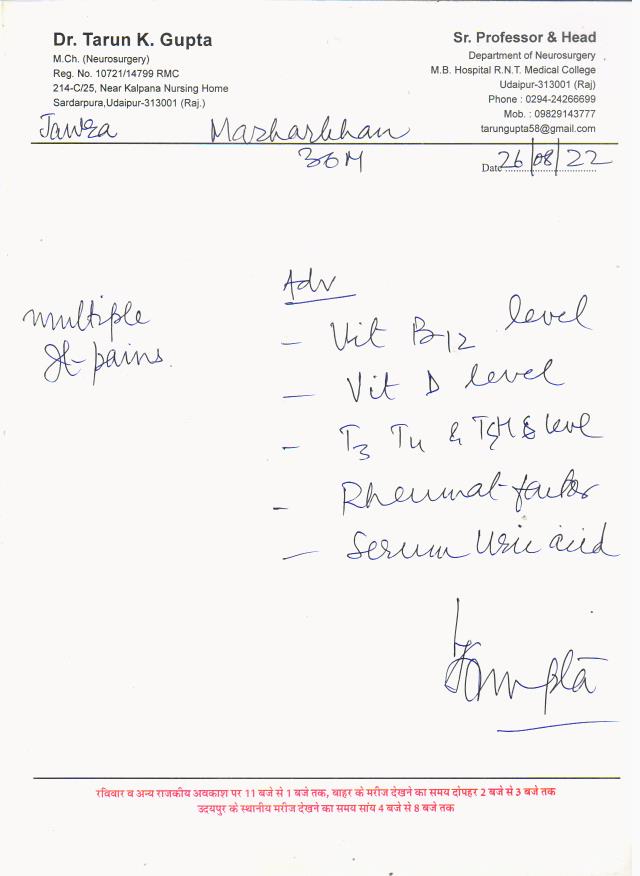 Dr. Tarun K. Gupta
M.Ch. (Neurosurgery)
Reg. No. 10721/14799 RMC
214-C/25, Near Kalpana Nursing Home
Sardarpura,Udaipur-313001 (Raj.)
Sr. Professor & Head
Department of Neurosurgery
M.B. Hospital R.N.T. Medical College
Udaipur-313001 (Raj)
Phone : 0294-24266699
Mob. : 09829143777
tarungupta58@gmail.com
Jawra Mazharkhan
36M
Date 26/08/22
Adv
multiple
Jt-pains.
- Vit B12 level
- Vit D level
- T3 T4 & TSH level
- Rheumat-factor
- Serum Uric acid
रविवार व अन्य राजकीय अवकाश पर 11 बजे से 1 बजे तक, बाहर के मरीज देखने का समय दोपहर 2 बजे से 3 बजे तक
उदयपुर के स्थानीय मरीज देखने का समय सांय 4 बजे से 8 बजे तक